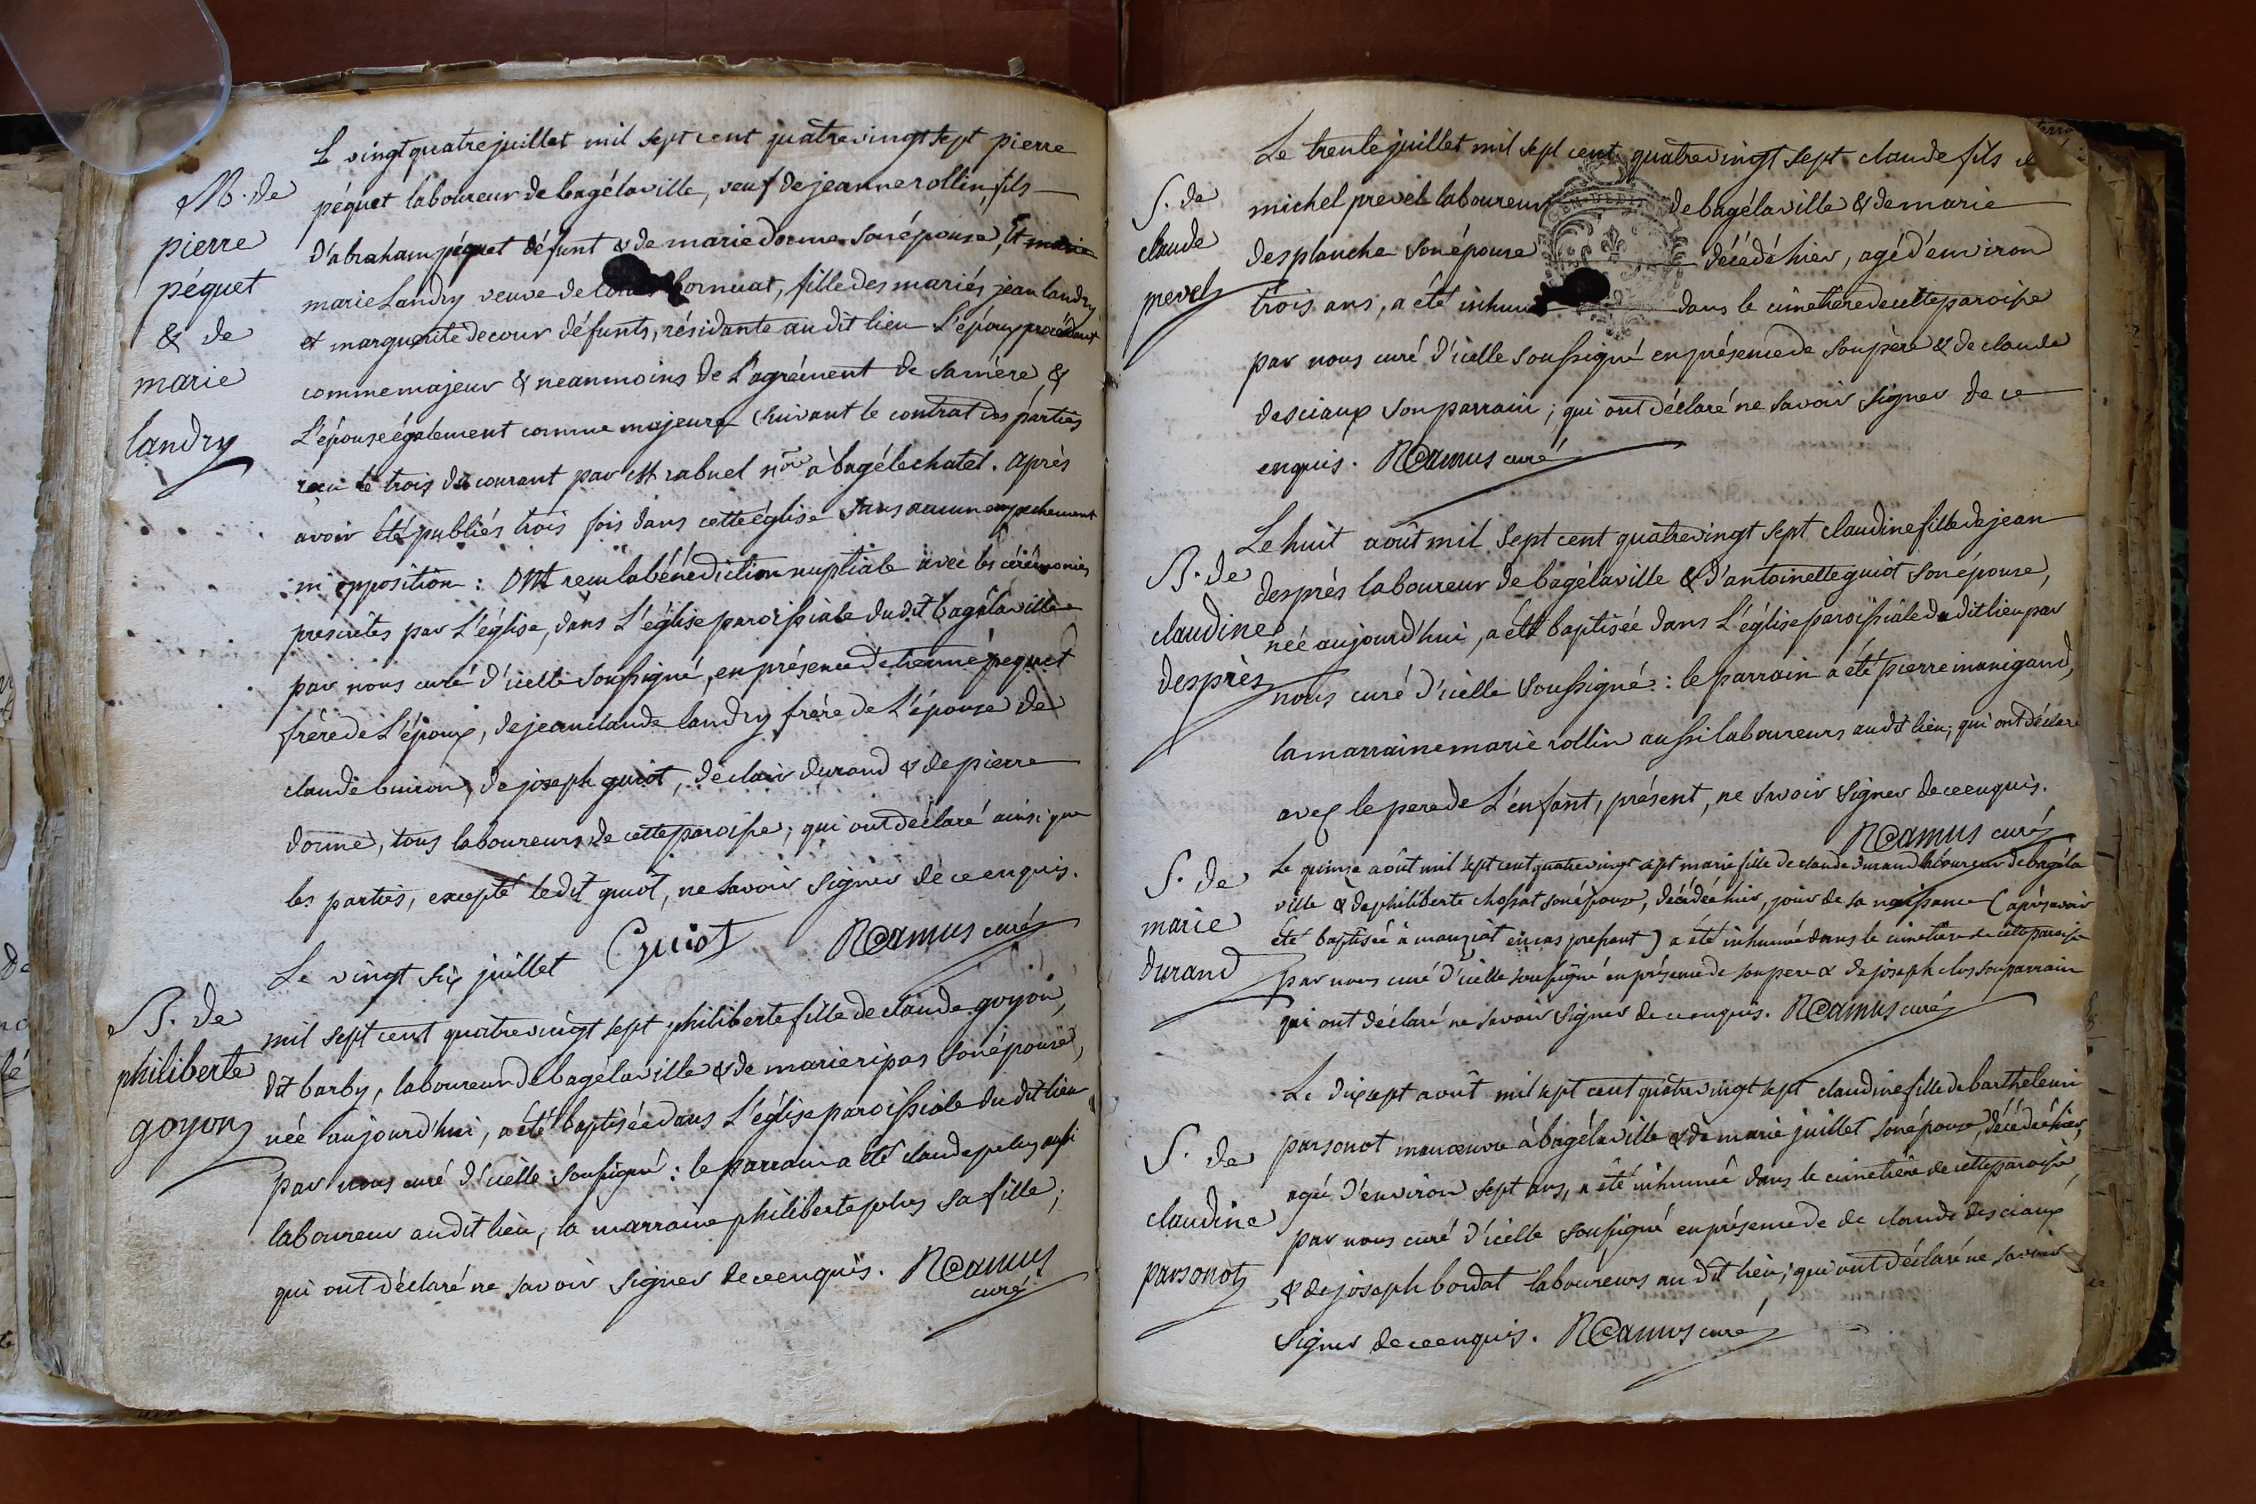 Le vingt quatre juillet mil sept cent quatre vingt sept pierre
M. de
pierre
péquet
& de
marie
landry
péquet laboureur de bagélaville, veuf de jeanne rollin, fils
d'abraham péquet défunt & de marie dorme son épouse, Et marie
marie Landry veuve de cornuat, fille des mariés jean landry
et marguerite decour défunts, résidante au dit lieu L'époux procédant
comme majeur & neanmoins de L'agrément de sa mére, &
L'épouse également comme majeure suivant le contrat des parties
recu le trois du courant par M rabuel nre à bagélechatel. après
avoir été publiés trois fois dans cette église sans aucun empechement
ni opposition : ont recu la bénédiction nuptiale avec les cérémonies
prescrites par L'église, dans L'église paroissiale du dit bagélaville
par nous curé d'icelle soussigné, en présence d'etienne péquet
frère de L'époux, de jean claude landry frère de L'épouse de
claude buiron, de joseph guiot, de clair durand & de pierre
dorme, tous laboureurs de cette paroisse; qui ont déclaré ainsi que
les parties, excepté le dit guiot, ne savoir signer de ce enquis.
Guiot NCamus curé
Le vingt six juillet
B. de
philiberte
goyon
mil sept cent quatre vingt sept philiberte fille de claude goyon,
dit barby, laboureur de bagélaville & de marie ripas son épouse,
née aujourd'hui, a été baptisée dans L'église paroissiale du dit lieu
par nous curé d'icelle soussigné : le parrain a été claude pelus aussi
laboureur au dit lieu, la marraine philiberte pelus sa fille;
qui ont déclaré ne savoir signer de ce enquis. NCamus
curé
Le trente juillet mil sept cent quatre vingt sept claude fils de
S. de
claude
prevel
michel prevel laboureur de bagélaville & de marie
desplanche son épouse décédé hier, agé d'environ
trois ans, a été inhumé dans le cimetiere de cette paroisse
par nous curé d'icelle soussigné en présence de son père & de claude
desciaux son parrain; qui ont déclaré ne savoir signer de ce
enquis. NCamus curé
Le huit août mil sept cent quatre vingt sept claudine fille de jean
B. de
claudine
desprès
desprès laboureur de bagélaville & d'antoinette guiot son épouse,
née aujourd'hui, a été baptisée dans L'église paroissiale du dit lieu par
nous curé d'icelle soussigné : le parrain a été pierre manigand,
la marraine marie rollin aussi laboureurs au dit lieu; qui ont déclaré
avec le pere de L'enfant, présent, ne savoir signer de ce enquis.
NCamus curé
S. de
marie
durand
Le quinze août mil sept cent quatre vingt sept marie fille de claude durand laboureur de bagéla
ville & de philiberte chossat son épouse, décédée hier, jour de sa naissance (après avoir
été baptisée à manziat en cas pressant) a été inhumée dans le cimetiere de cette paroisse
par nous curé d'icelle soussigné en présence de son pere & de joseph clos son parrain
qui ont déclaré ne savoir signer de ce enquis. NCamus curé
Le dixsept août mil sept cent quatre vingt sept claudine fille de barthelemi
S. de
claudine
parsonot
parsonot manœuvre à bagélaville & de marie juillet son épouse, décédée hier,
agée d'environ sept ans, a été inhumée dans le cimetiere de cette paroisse,
par nous curé d'icelle soussigné en présence de de claude desciaux
& de joseph bordat laboureurs au dit lieu; qui ont déclaré ne savoir
signer de ce enquis. NCamus curé